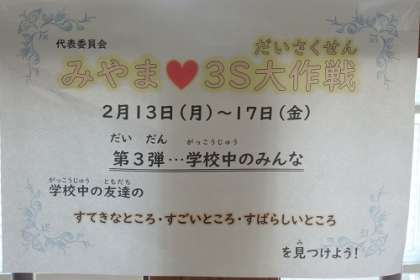 代表委員会
だいさくせん
みやま♥3S大作戦
2月13日(月)~17日(金)
だい だん がっこうじゅう
第3弾…学校中のみんな
がっこうじゅう ともだち
学校中の友達の
すてきなところ・すごいところ・すばらしいところ
み
を見つけよう!